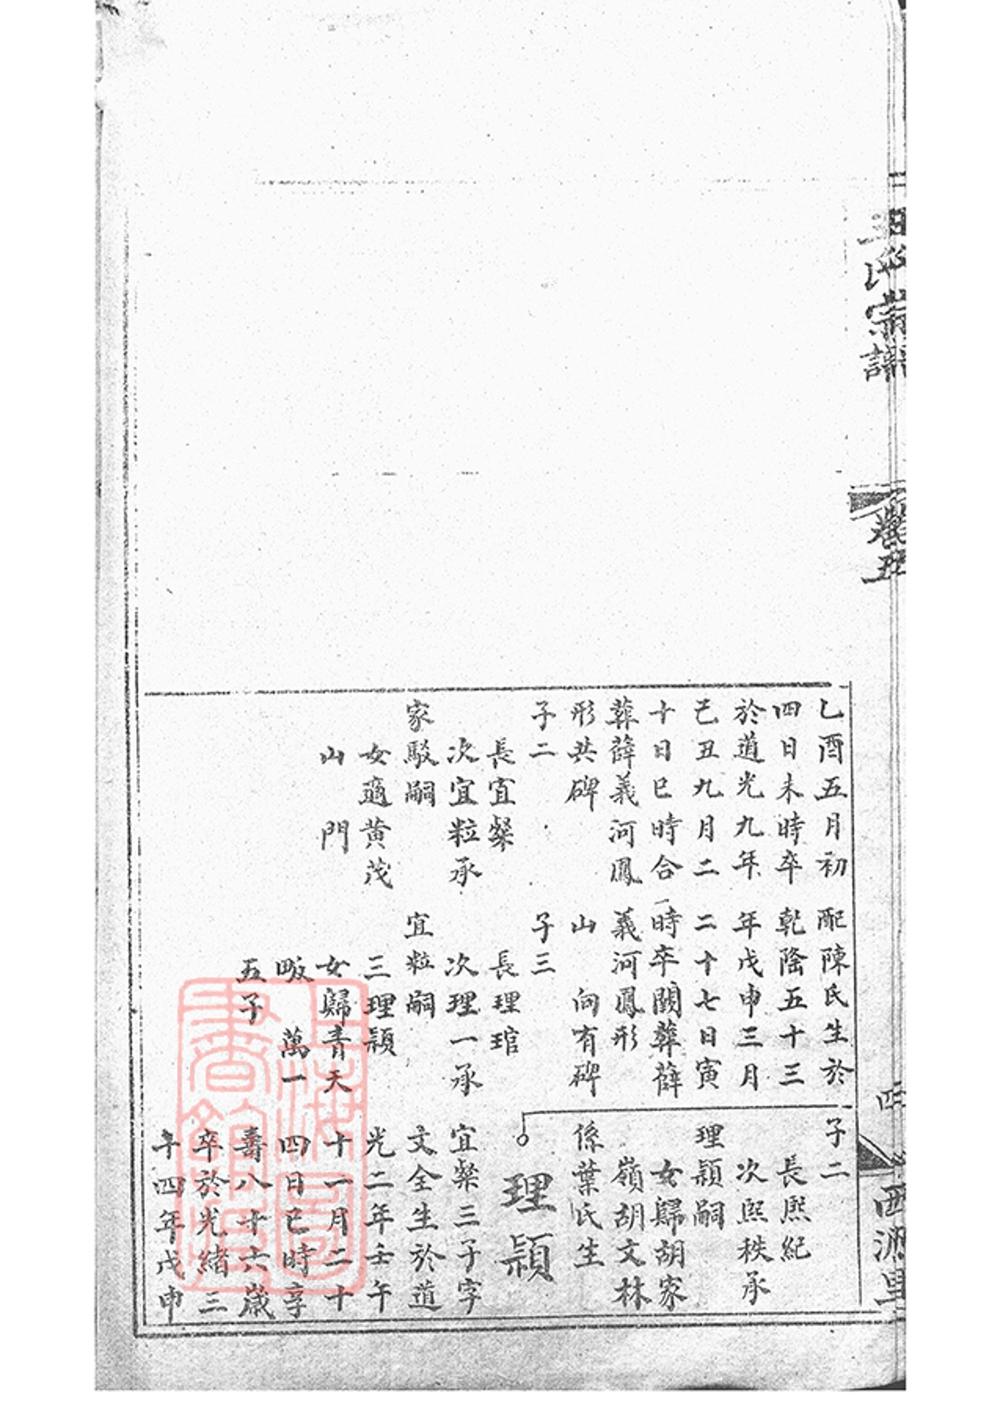 宗譜
卷五
西源里
乙酉五月初
四日未時卒
於道光九年
己丑九月二
十日巳時合
葬薛義河鳳
形共碑
子二
長宜粲
次宜粒承
家駁嗣
女適黃茂
山門
配陳氏生於
乾隆五十三
年戊申三月
二十七日寅
時卒闕葬薛
義河鳳形
山 向有碑
子三
長理琯
次理一承
宜粒嗣
三理穎
女歸青天
畈 萬一
五子
子二
長熙紀
次熙秩承
理穎嗣
女歸胡家
嶺胡文林
係葉氏生
理穎
宜粲三子字
文全生於道
光二年壬午
十一月二十
四日巳時享
壽八十六歲
卒於光緒三
十四年戊申
上海圖
書館藏